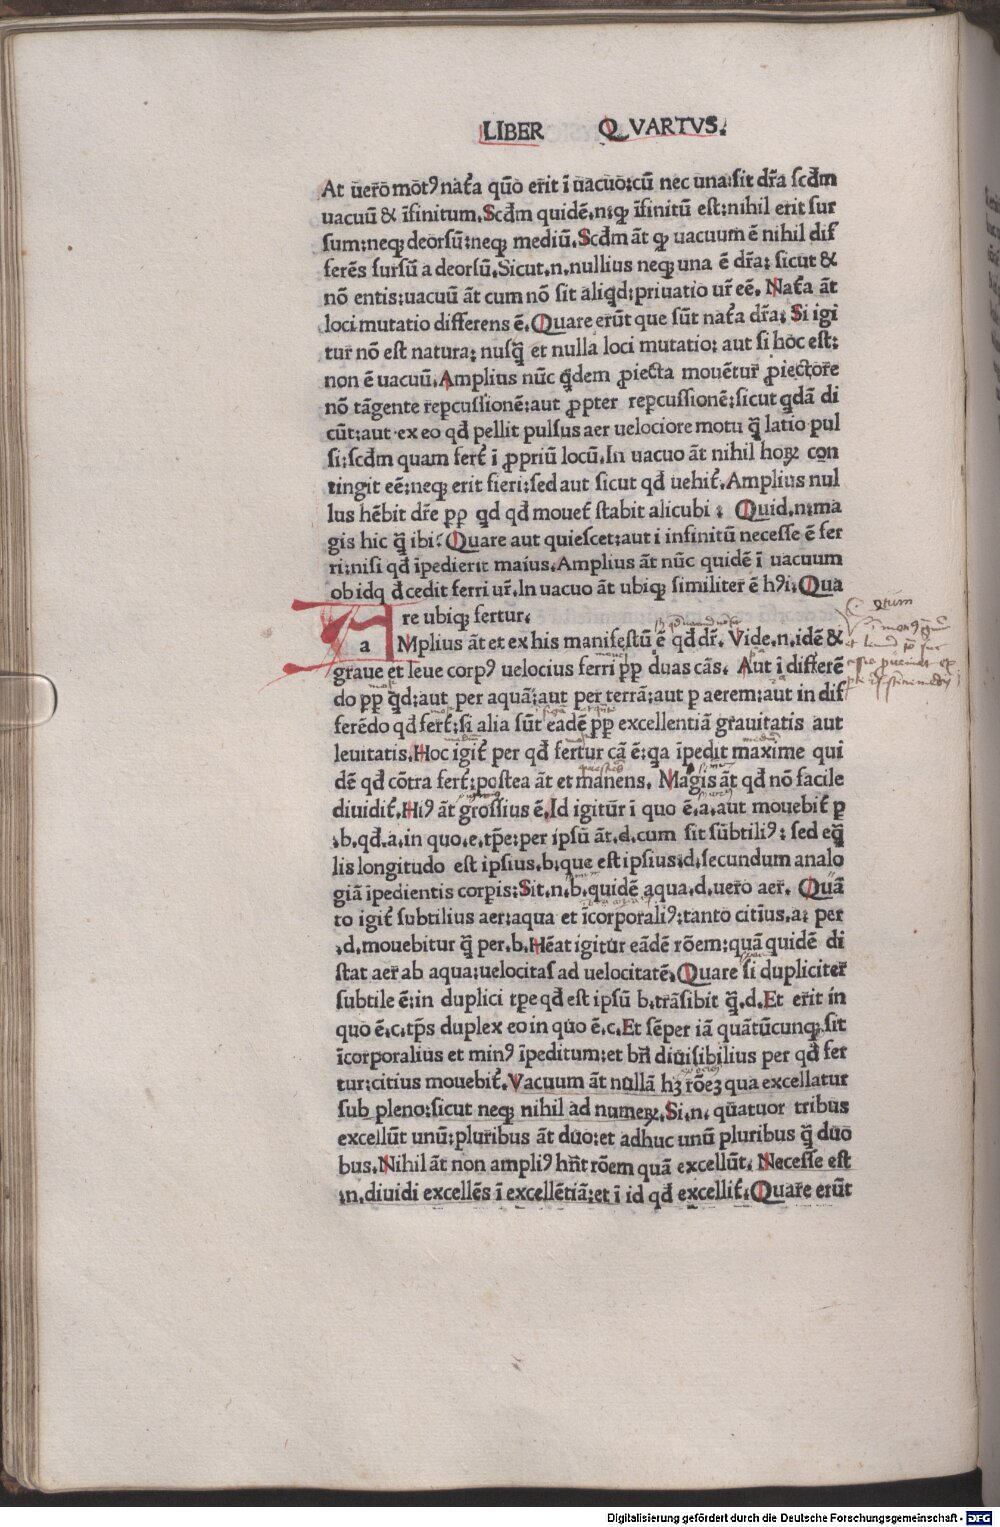 LIBER QVARTVS.
At ũerõ mõtꝯ naťa quõ erit ĩ uacuo:cũ nec una:sit dr̃a scđm
uacuũ & ĩfinitum. Scđm quidẽ.n.qꝫ ĩfinitũ est:nihil erit sur
sum:neqꝫ deorsũ:neqꝫ mediũ. Scđm ãt qꝫ uacuum ẽ nihil dif
ferẽs sursũ a deorsũ. Sicut.n.nullius neqꝫ una ẽ dr̃a: sicut &
nõ entis:uacuũ ãt cum nõ sit aliqd:priuatio ur̃ eẽ. Naťa ãt
loci mutatio differens ẽ. Quare erũt que sũt naťa dr̃a: Si igi
tur nõ est natura: nusq̃ et nulla loci mutatio: aut si hoc est:
non ẽ uacuũ. Amplius nũc qdem ꝓiecta mouẽtur ꝓiectore
nõ tãgente reꝑcussionẽ:aut ꝓpter reꝑcussionẽ:sicut qdã di
cũt:aut ex eo qđ pellit pulsus aer uelociore motu q̃ latio pul
si:scđm quam ferť ĩ ꝓpriũ locũ. In uacuo ãt nihil hoꝝ con
tingit eẽ:neqꝫ erit fieri:sed aut sicut qđ uehiť. Amplius nul
lus hẽbit dr̃e ꝓꝑ qd qđ moueť stabit alicubi: Quid.n:ma
gis hic q̃ ibi? Quare aut quiescet:aut i infinitũ necesse ẽ fer
ri:nisi qđ ĩpedierit maius. Amplius ãt nũc quidẽ ĩ uacuum
ob idq đ cedit ferri ur̃. In uacuo ãt ubiqꝫ similiter ẽ hꝯi. Qua
re ubiqꝫ fertur.
a Mplius ãt et ex his manifestũ ẽ qđ dr̃. Vide.n.idẽ &
graue et leue corpꝯ uelocius ferri ꝓꝑ duas cãs. Aut ĩ differẽ
do ꝓꝑ qd:aut per aquã:aut per terrã:aut ꝑ aerem:aut in dif
ferẽdo qđ ferť:si alia sũt eadẽ ꝓꝑ excellentiã grauitatis aut
leuitatis. Hoc igiť per qđ fertur cã ẽ:qa ĩpedit maxime qui
dẽ qđ cõtra ferť:postea ãt et manens. Magis ãt qđ nõ facile
diuidiť. Hiꝯ ãt grossius ẽ. Id igitur̃ i quo ẽ.a.aut mouebiť ꝑ
.b.qđ.a.in quo.e.tp̃e:per ipsũ ãt.d.cum sit sũbtiliꝯ: sed eq̃
lis longitudo est ipsius.b:que est ipsius:d.secundum analo
giã ĩpedientis corpis:Sit.n.b.quidẽ aqua.d.uero aer. Quã
to igiť subtilius aer:aqua et ĩcorporaliꝯ:tanto citius.a: per
.d.mouebitur q̃ per.b. Hẽat igitur eãdẽ rõem:quã quidẽ di
stat aer ab aqua:uelocitas ad uelocitatẽ. Quare si dupliciter
subtile ẽ:in duplici tp̃e qđ est ipsũ b.trãsibit q̃.d. Et erit in
quo ẽ.c.tp̃s duplex eo in quo ẽ.c. Et sẽper iã quãtũcunqꝫ sit
ĩcorporalius et minꝯ ĩpeditum:et bñ diuisibilius per qđ fer
tur:citius mouebiť. Vacuum ãt nullã hꝫ rõeꝫ qua excellatur
sub pleno:sicut neqꝫ nihil ad numeꝝ. Si.n. quatuor tribus
excellũt unũ:pluribus ãt duo:et adhuc unũ pluribus q̃ duo
bus. Nihil ãt non ampliꝯ hñt rõem quã excellũt. Necesse est
.n.diuidi excellẽs ĩ excellẽtiã:et ĩ id qđ excelliť. Quare erũt
Digitalisierung gefördert durch die Deutsche Forschungsgemeinschaft - DFG